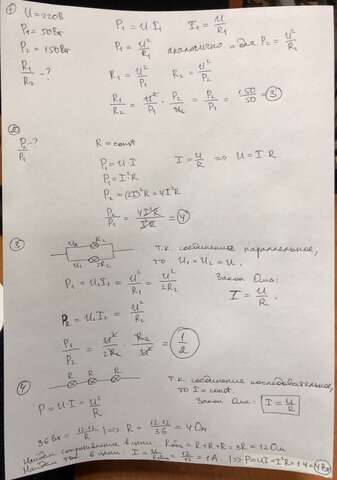 ① U = 220В
P₁ = 50Вт
P₂ = 150Вт
R₁/R₂ = ?
P₁ = U·I₁ I₁ = U/R₁
P₁ = U²/R₁ аналогично и для P₂ = U²/R₁
R₁ = U²/P₁ R₂ = U²/P₂
R₁/R₂ = U²/P₁ · P₂/U² = P₂/P₁ = 150/50 = ③
② P₂/P₁ = ? R = const
P₁ = U I I = U/R ⟹ U = I R
P₁ = I²R
P₂ = (2I)²R = 4I²R
P₂/P₁ = 4I²R/I²R = ④
③ U₂ R₂
U₁ 2R₂
т.к. соединение параллельное,
то U₁ = U₂ = U.
P₁ = U₁I₁ = U²/R₁ = U²/2R₂
Закон Ома:
I = U/R.
P₂ = U₂I₂ = U²/R₂
P₁/P₂ = U²/2R₂ · R₂/U² = 1/2
④ R R R
т.к. соединение последовательное,
то I = const.
P = U I = U²/R
Закон Ома: I = U/R
36Вт = 12·12/R |⟹ R = 12·12/36 = 4 Ом
Найдем сопротивление в цепи: Rобщ = R + R + R = 3R = 12Ом
Найдем ток в цепи: I = U/Rобщ = 12/12 = 1А. |⟹ P = UI = I²R = 1·4 = 4Вт